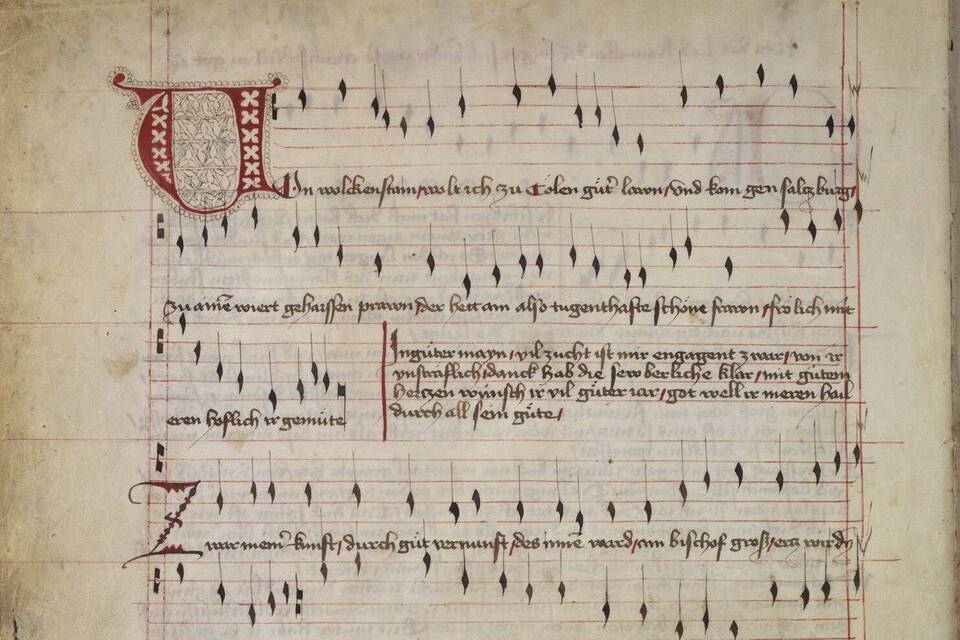 Von wolckenstain / wolt ich zu Cölen gut' lawn / vnd kom gen salczburg /
Zu aine͞ wiert gehaissen prawn / der hett ain also tugenthafte schöne frawen / frölich mit
eren hoflich ir gemüte
In gúter mayn / vil zucht ist mir engagent zwar / von ir
vnstráflich / danck hab die sewberliche klár / mit gútem
hertzen wúnsch ir vil gúter iar / got well ir meren hail
durch all sein gúte /
Zwar mein' kunst / durch gút vernunft / des inne͞ ward / ain bischof gros / ertz wirdig